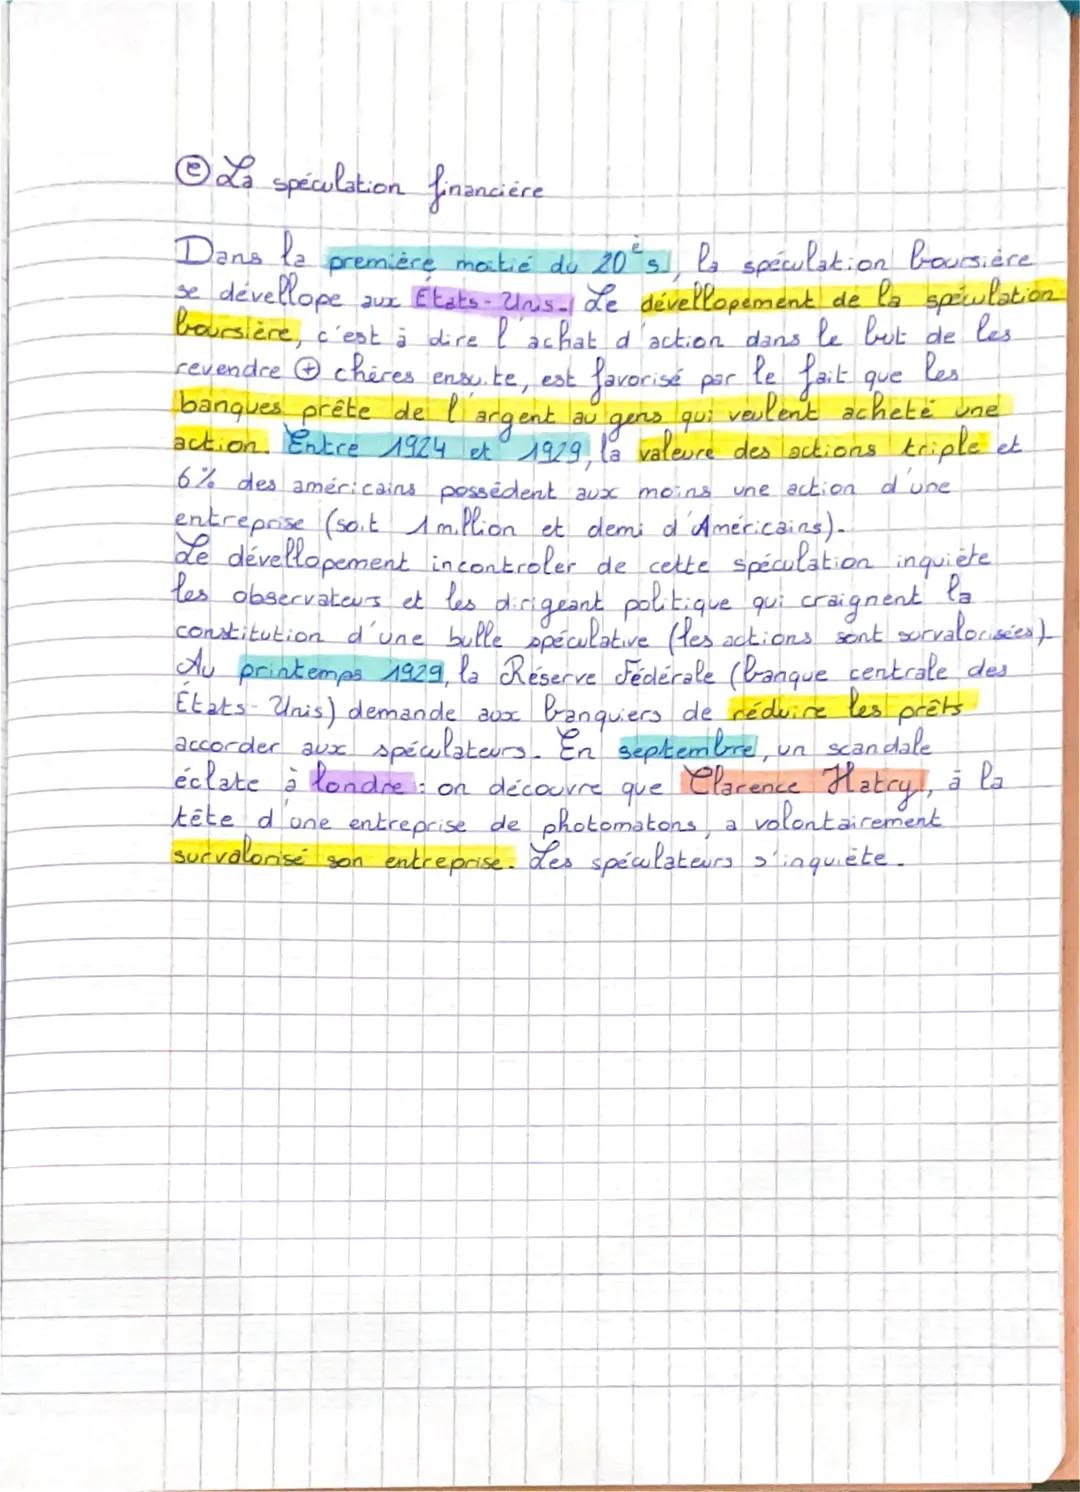 ⓔ La spéculation financière
Dans la première moitié du 20ès, la spéculation boursière
se dévellope aux États-Unis. Le dévellopement de la spéculation
boursière, c'est à dire l'achat d'action dans le but de les
revendre ⊕ chères ensuite, est favorisé par le fait que les
banques prête de l'argent au gens qui veulent acheté une
action. Entre 1924 et 1929, la valeure des actions triple et
6% des américains possèdent aux moins une action d'une
entreprise (soit 1 million et demi d'Américains).
Le dévellopement incontroler de cette spéculation inquiète
les observateurs et les dirigeant politique qui craignent la
constitution d'une bulle spéculative (les actions sont survalorisées)
Au printemps 1929, la Réserve Fédérale (banque centrale des
États-Unis) demande aux banquiers de réduire les prêts
accorder aux spéculateurs. En septembre, un scandale
éclate à londre : on découvre que Clarence Hatry, à la
tête d'une entreprise de photomatons, a volontairement
survalorisé son entreprise. Les spéculateurs s'inquiète.